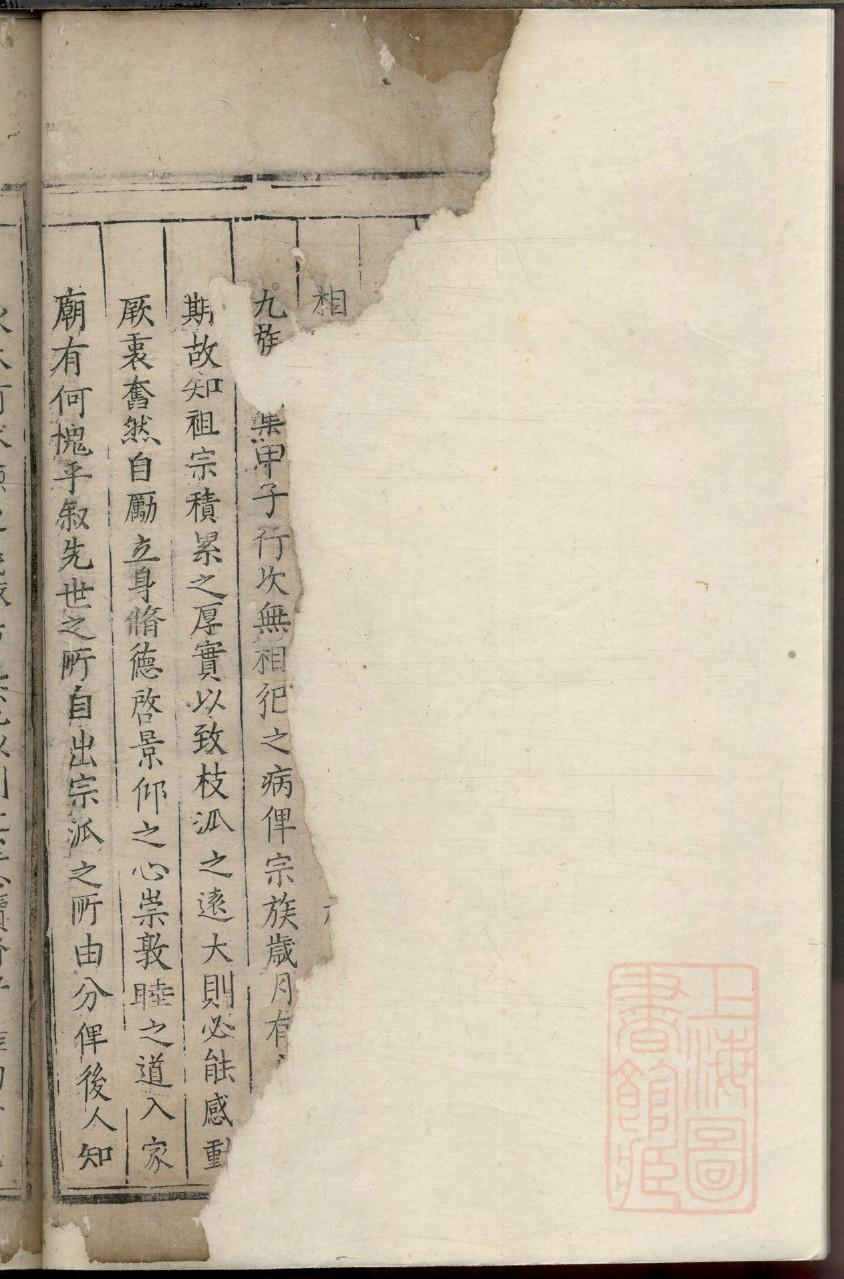 相
九族
甲子行次無相犯之病俾宗族歲月有
期故知祖宗積累之厚實以致枝泒之遠大則必能感動
厥衷奮然自勵立身脩德啓景仰之心崇敦睦之道入家
廟有何愧乎叙先世之所自出宗泒之所由分俾後人知
上海圖
書館藏